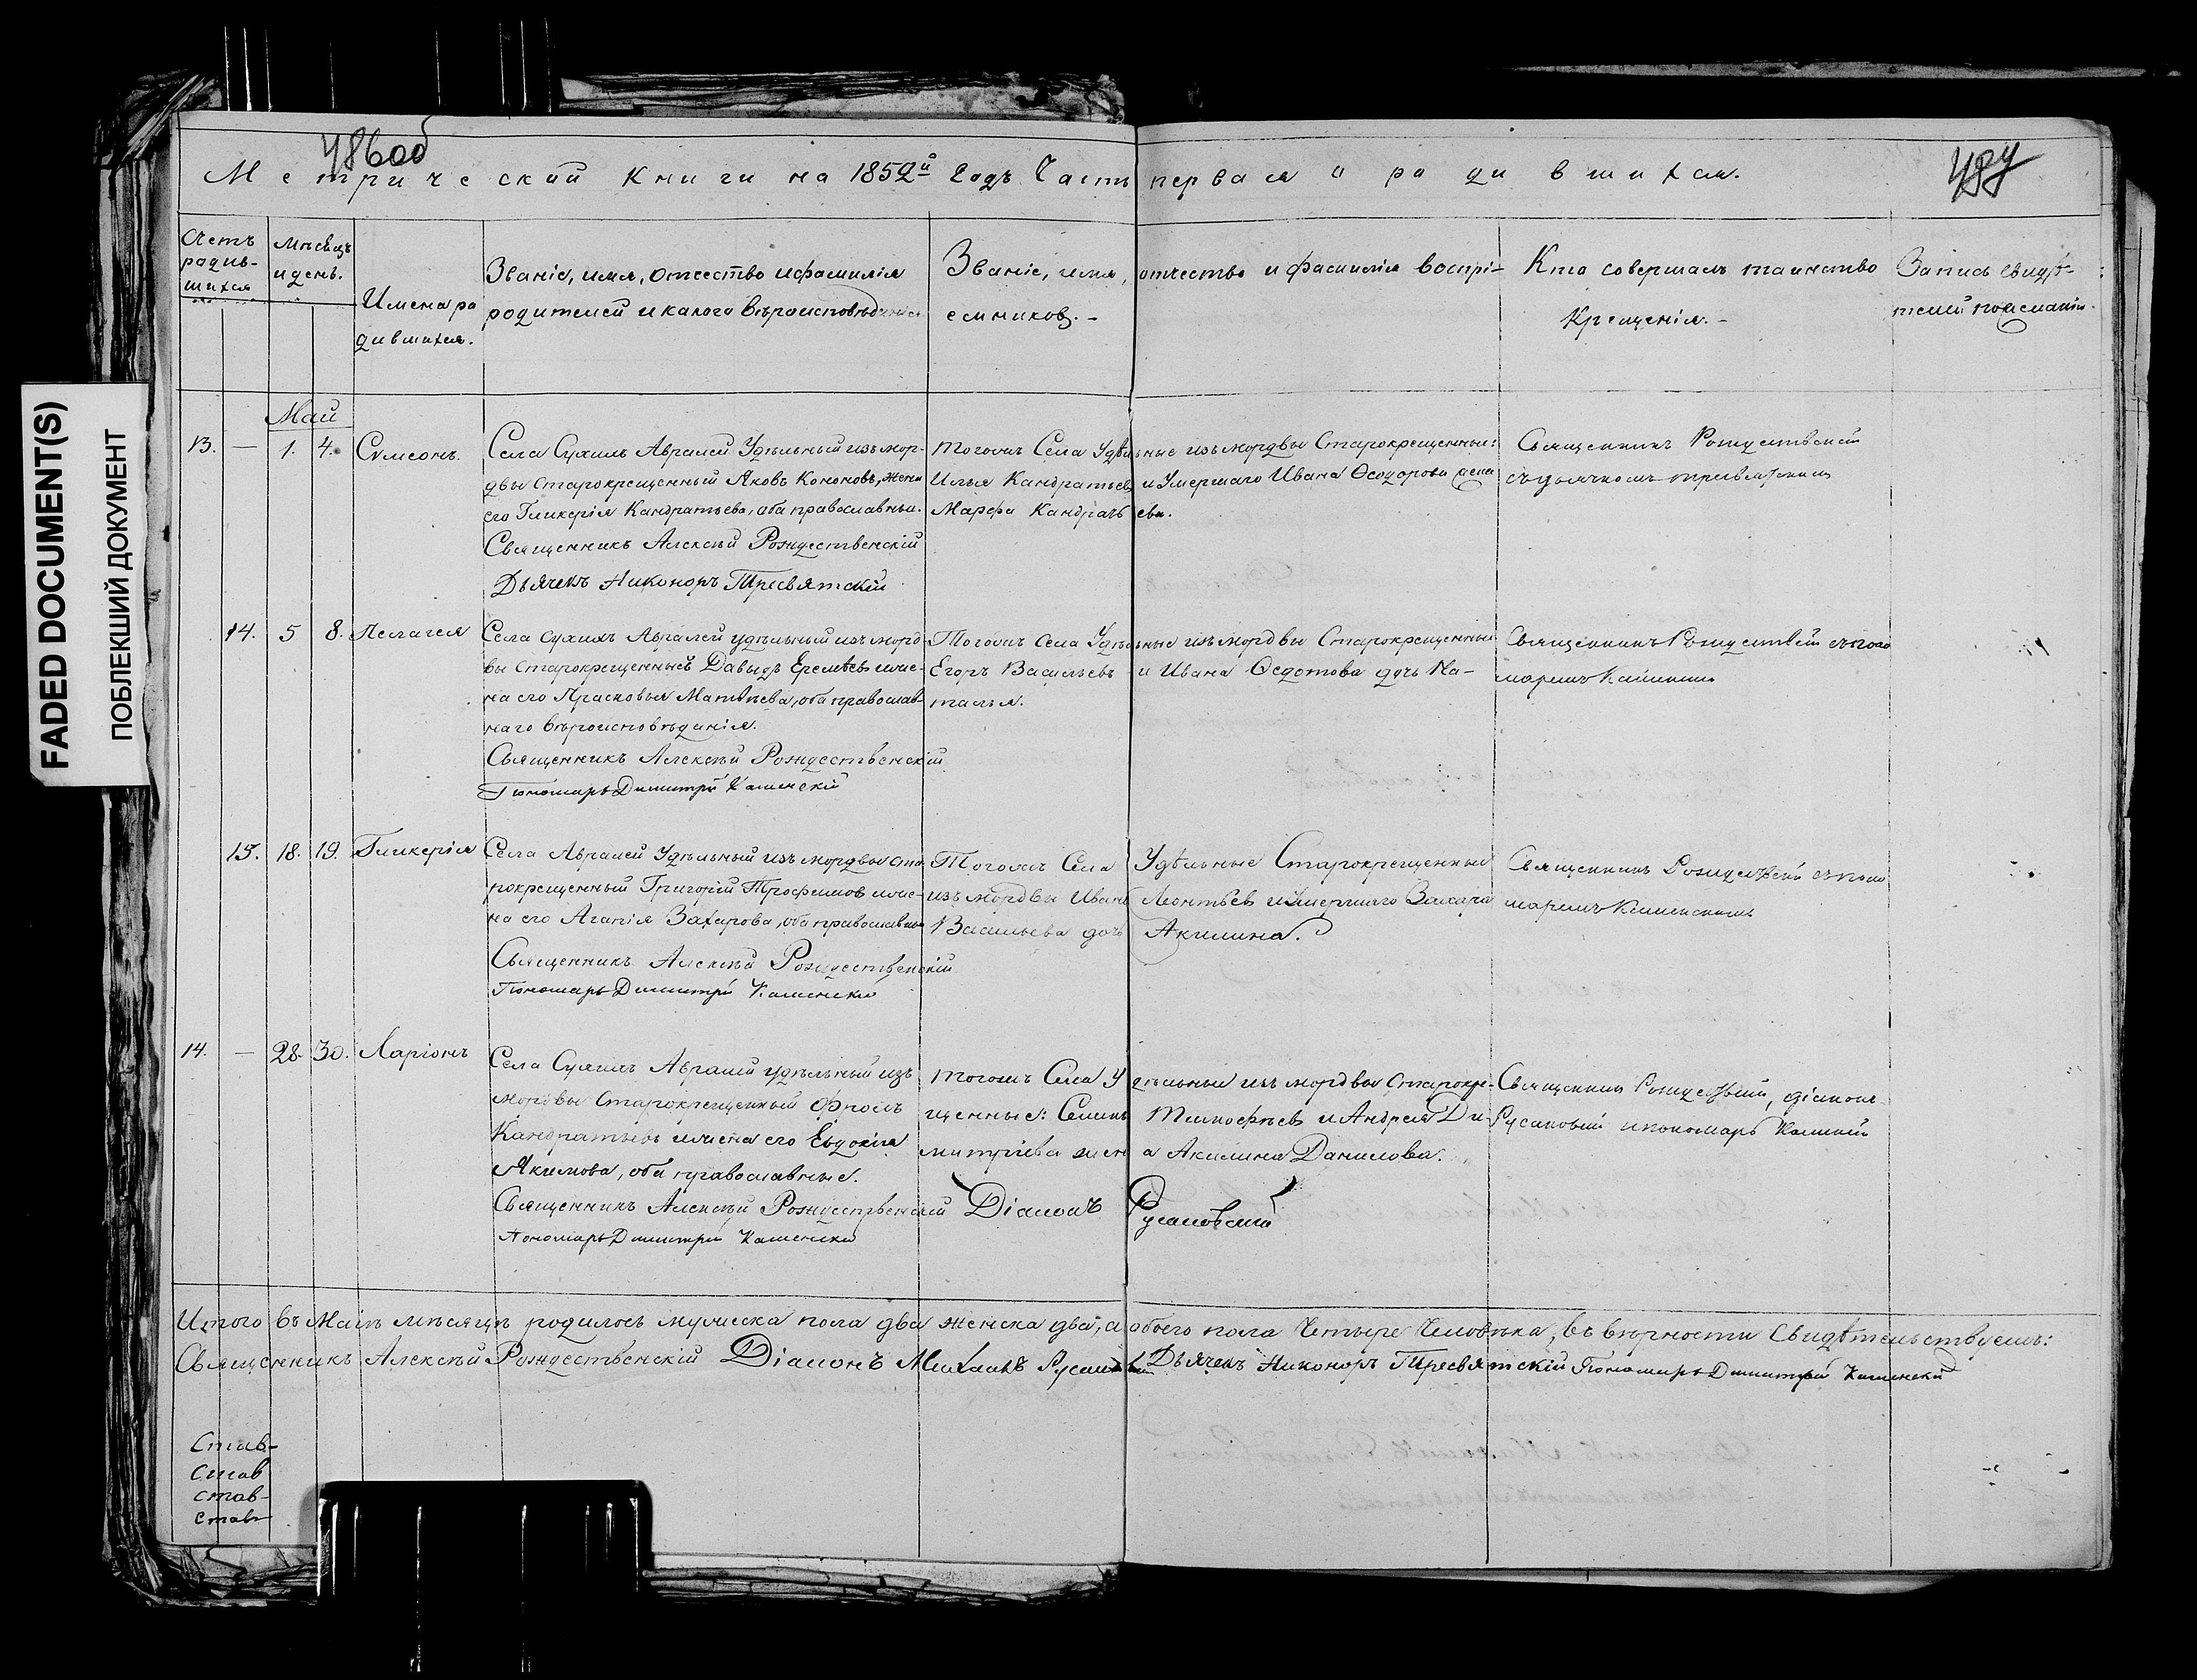 FADED DOCUMENT(S)
ПОБЛЕКШИЙ ДОКУМЕНТ
486об
487
Метрической книги на 1852й годъ Часть первая о родившихся.
Счетъ родив-
шихся
Мѣсяцъ
и день.
Имена ро
дившихся.
Званіе, имя, отчество и фамилія
родителей и какого вѣроисповѣданія
Званіе, имя, отчество и фамилія воспрі-
емниковъ.-
Кто совершалъ таинство
Крещенія.-
Запись свидѣ-
телей по желанію.
Май
13. — 1. 4. Сѵмеонъ.
Села Сухихъ Авралей Удѣльный изъ мор-
двы старокрещенный Яковъ Кононовъ, жена
его Гликерія Кандратьева, оба православныи.
Священникъ Алексѣй Рождественскій
Дьячекъ Никоноръ Тресвятскій
Тогожъ Села Удѣльные изъ мордвы Старокрещенные:
Илья Кандратьевъ и Умершаго Ивана Ѳеодорова жена
Марфа Кандратьева.
Священникъ Рождественскій
съ дьячкомъ Тресвятскимъ
14. 5 8. Пелагея
Села Сухихъ Авралей удѣльный изъ морд-
вы старокрещенный Давыдъ Еремѣевъ и же-
на его Прасковья Матвѣева, оба православ-
наго вѣроисповѣданія.
Священникъ Алексѣй Рождественскій
Пономарь Димитрій Каменскій
Тогожъ Села Удѣльные изъ мордвы Старокрещенныи
Егоръ Васильевъ и Ивана Ѳедотова дочь На-
талья.
Священникъ Рождествен съ поно
маремъ Каменским
15. 18. 19. Гликерія
Села Авралей Удѣльный изъ мордвы ста
рокрещенный Григорій Трофимов и же-
на его Агапія Захарова, оба православныи
Священникъ Алексѣй Рождественскій
Пономарь Димитрій Каменскій
Тогожъ Села Удѣльные Старокрещенныи
изъ мордвы Иванъ Леонтьевъ и Умершаго Захара
Васильева дочь Акилина.
Священникъ Рождествен съ поно
маремъ Каменскимъ
14. — 28. 30. Ларіонъ
Села Сухихъ Авралей удѣльный изъ
мордвы Старокрещенный Фролъ
Кандратьевъ и жена его Евдокія
Якимова, оба православные.
Священникъ Алексѣй Рождественскій
Пономарь Димитрій Каменскій
Тогожъ Села Удѣльныи изъ мордвы Старокре-
щенные: Семенъ Тимофѣевъ и Андрея Ди-
митріева жена Акилина Данилова.
Діаконъ Русановскій
Священникъ Рождествен, діаконъ
Русановскій и пономарь Каменскій
Итого въ Маіѣ мѣсяцѣ родилось мужеска пола два женска два, а обоего пола Четыре Человѣка, въ вѣрности свидѣтельствуемъ:
Священникъ Алексѣй Рождественскій Діаконъ Михаилъ Русановскій Дьячекъ Никоноръ Тресвятскій Пономарь Димитрій Каменскій